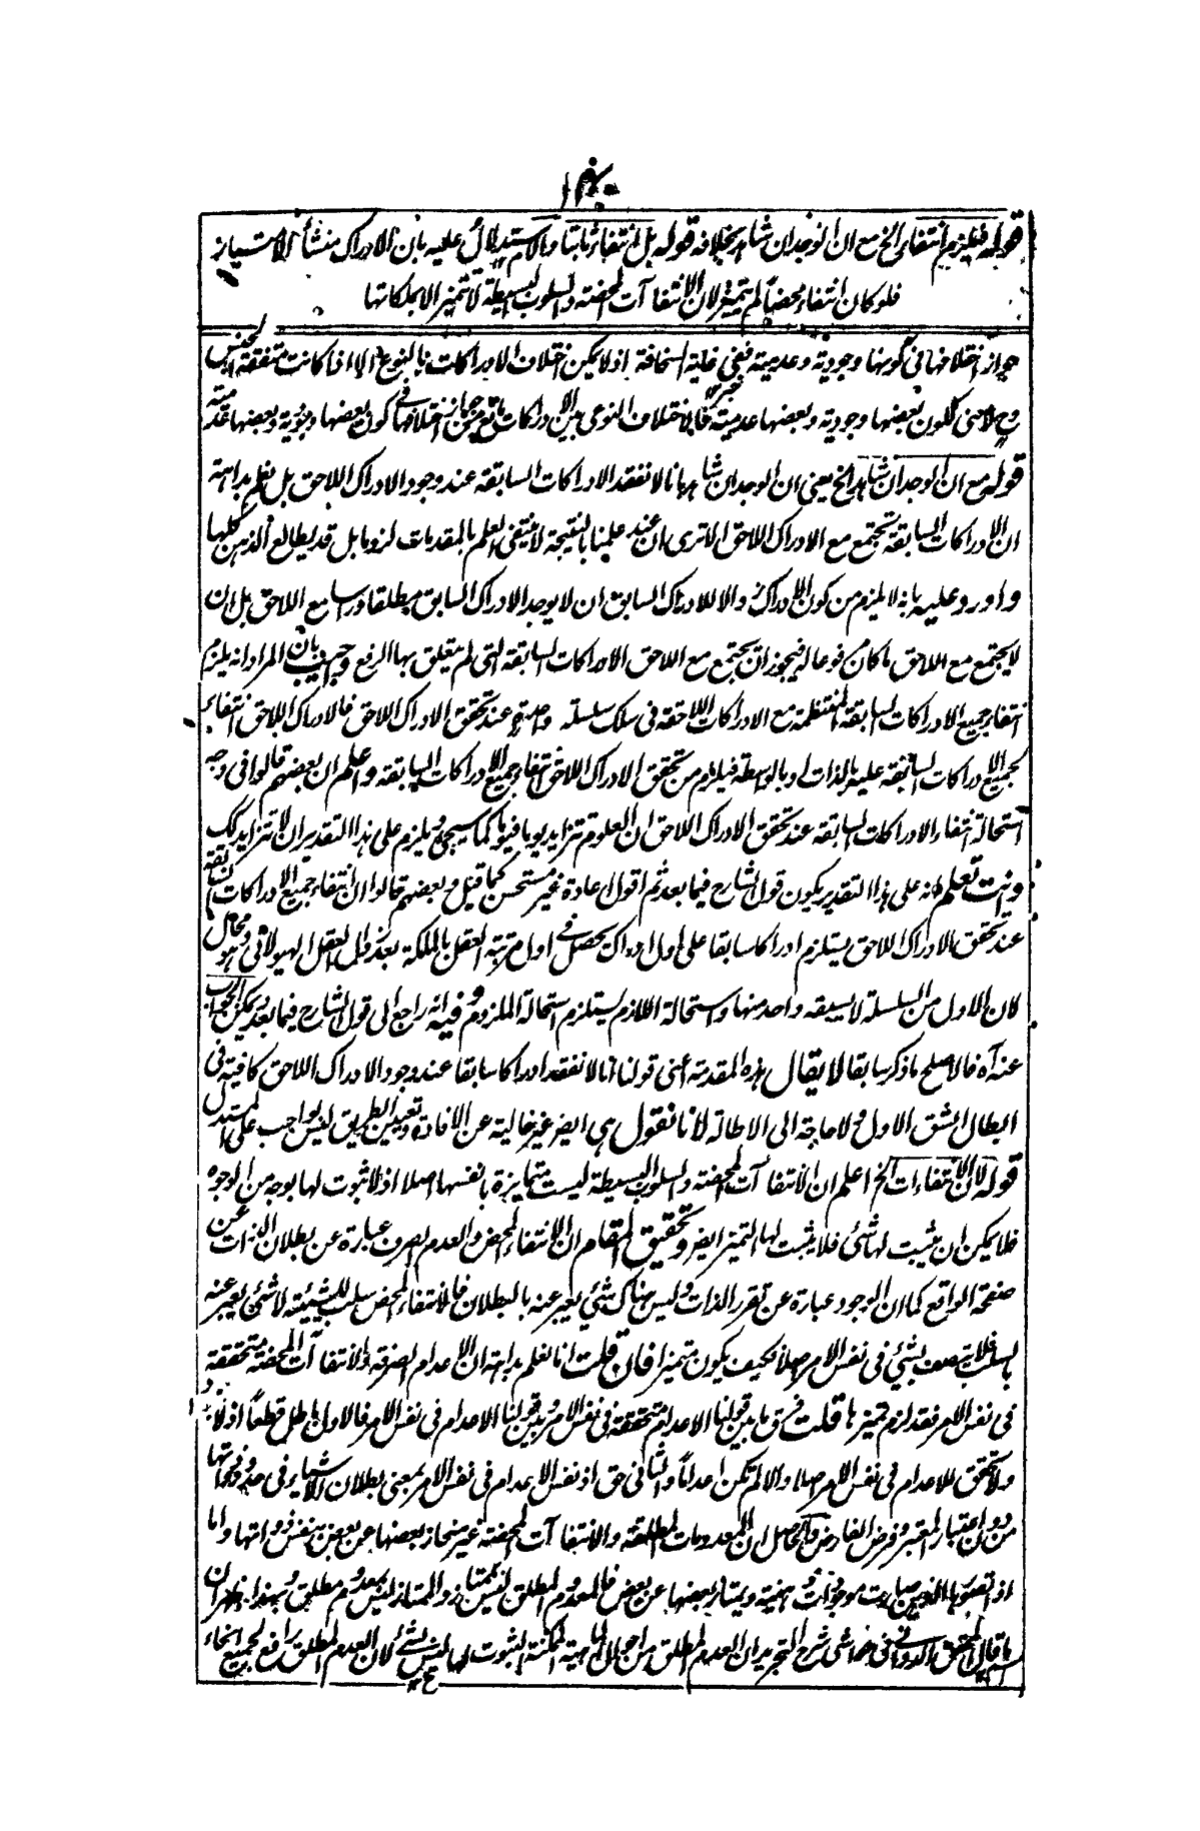 قوله فيلزم انتفاء الخ مع ان الوجدان شاهد بخلافه قوله بل انتفاء ثابتا والاستدلال عليه بان الادراك منشأ الامتياز
فلو كان انتفاء محضا لم يتميز لان الانتفاآت المحضة والسلوب البسيطة لا تتميز الا بملكاتها
جواز اختلافها في كونها وجودية وعدمية ففي غاية السخافة اذ لا يمكن اختلاف الادراكات بالنوع الا اذا كانت متفقة الجنس
وح لا معنى لكون بعضها وجودية وبعضها عدمية فالاختلاف النوعي بين الادراكات مانع من جواز اختلافها في كون بعضها وجودية وبعضها عدمية
قوله مع ان الوجدان شاهد الخ يعني ان الوجدان شاهد بانا لا نفقد الادراكات السابقة عند وجود الادراك اللاحق بل نعلم بداهة
ان الادراكات السابقة تجتمع مع الادراك اللاحق الا ترى ان عند علمنا بالنتيجة لا ينتفي العلم بالمقدمات لزوما بل قد يطالع الذهن كلها
واورد عليه بانه لا يلزم من كون الادراك زوالا للادراك السابق ان لا يوجد الادراك السابق مطلقا ورأسا مع اللاحق بل ان
لا يجتمع مع اللاحق ما كان مرفوعا له فيجوز ان يجتمع مع اللاحق الادراكات السابقة التي لم يتعلق بها الرفع واجيب بان المراد انه يلزم
انتفاء جميع الادراكات السابقة المنتظمة مع الادراكات اللاحقة في سلك سلسلة واحدة عند تحقق الادراك اللاحق فالادراك اللاحق انتفاء
لجميع الادراكات السابقة عليه بالذات او بالواسطة فيلزم من تحقق الادراك اللاحق انتفاء جميع الادراكات السابقة واعلم ان بعضهم قالوا في وجه
استحالة انتفاء الادراكات السابقة عند تحقق الادراك اللاحق ان العلوم تتزايد يوما فيوما كما سيجيء ويلزم على هذا التقدير ان لا تتزايد
وانت تعلم انه على هذا التقدير يكون قول الشارح فيما بعد ثم اقول اعادة غير مستحسن كما قيل وبعضهم قالوا ان انتفاء جميع الادراكات السابقة
عند تحقق الادراك اللاحق يستلزم ادراكا سابقا على اول ادراك يحصل في اول مرتبة العقل بالملكة بعد زوال العقل الهيولاني وهو محال
لان الاول من السلسلة لا يسبقه واحد منها واستحالة اللازم يستلزم استحالة الملزوم وفيه انه راجع الى قول الشارح فيما بعد ويمكن الجواب
عنه آه فالاصلح ما ذكر سابقا لا يقال هذه المقدمة اعني قولنا انا لا نفقد ادراكا سابقا عند وجود الادراك اللاحق كافية في
ابطال الشق الاول ولا حاجة الى الاطالة لانا نقول هي ايضا غير خالية عن الافادة وتعيين الطريق ليس بواجب على المستدل
قوله لان الانتفاءات الخ اعلم ان الانتفاآت المحضة والسلوب البسيطة ليست متمايزة بانفسها اصلا اذ لا ثبوت لها بوجه من الوجوه
فلا يمكن ان يثبت لها شئ فلا يثبت لها التميز ايضا وتحقيق المقام ان الانتفاء المحض والعدم الصرف عبارة عن بطلان الذات عن
صفحة الواقع كما ان الوجود عبارة عن تقرر الذات وليس هناك شئ يعبر عنه بالبطلان فالانتفاء المحض سلب للشيئية لا شئ يعبر عنه
بالسلب فلا يتصف بشئ في نفس الامر اصلا فكيف يكون متميزا فان قلت انا نعلم بداهة ان الاعدام الصرفة والانتفاآت المحضة متحققة
في نفس الامر فقد لزم تميزها قلت فرق ما بين قولنا الاعدام متحققة في نفس الامر وبين قولنا الاعدام في نفس الامر فالاول باطل قطعا اذ لا
ولا تحقق للاعدام في نفس الامر اصلا والا لم تكن اعداما والثاني حق اذ نفس الاعدام في نفس الامر بمعنى بطلان الاشياء في حدود ذواتها
من دون اعتبار المعتبر وفرض الفارض والحاصل ان المعدومات المطلقة والانتفاآت المحضة غير منحاز بعضها عن بعض بنفس ذواتها واما
اذا تصورها الذهن صارت موجودات ذهنية ويمتاز بعضها عن بعض فالمعدوم المطلق ليس بممتاز والممتاز ليس بمعدوم مطلق وبهذا ظهر ان
ما قال المحقق الدواني في حواشي شرح التجريد ان العدم المطلق من اجل الماهية الممكنة الثبوت لها ليس بشئ لان العدم المطلق رافع لجميع انحاء